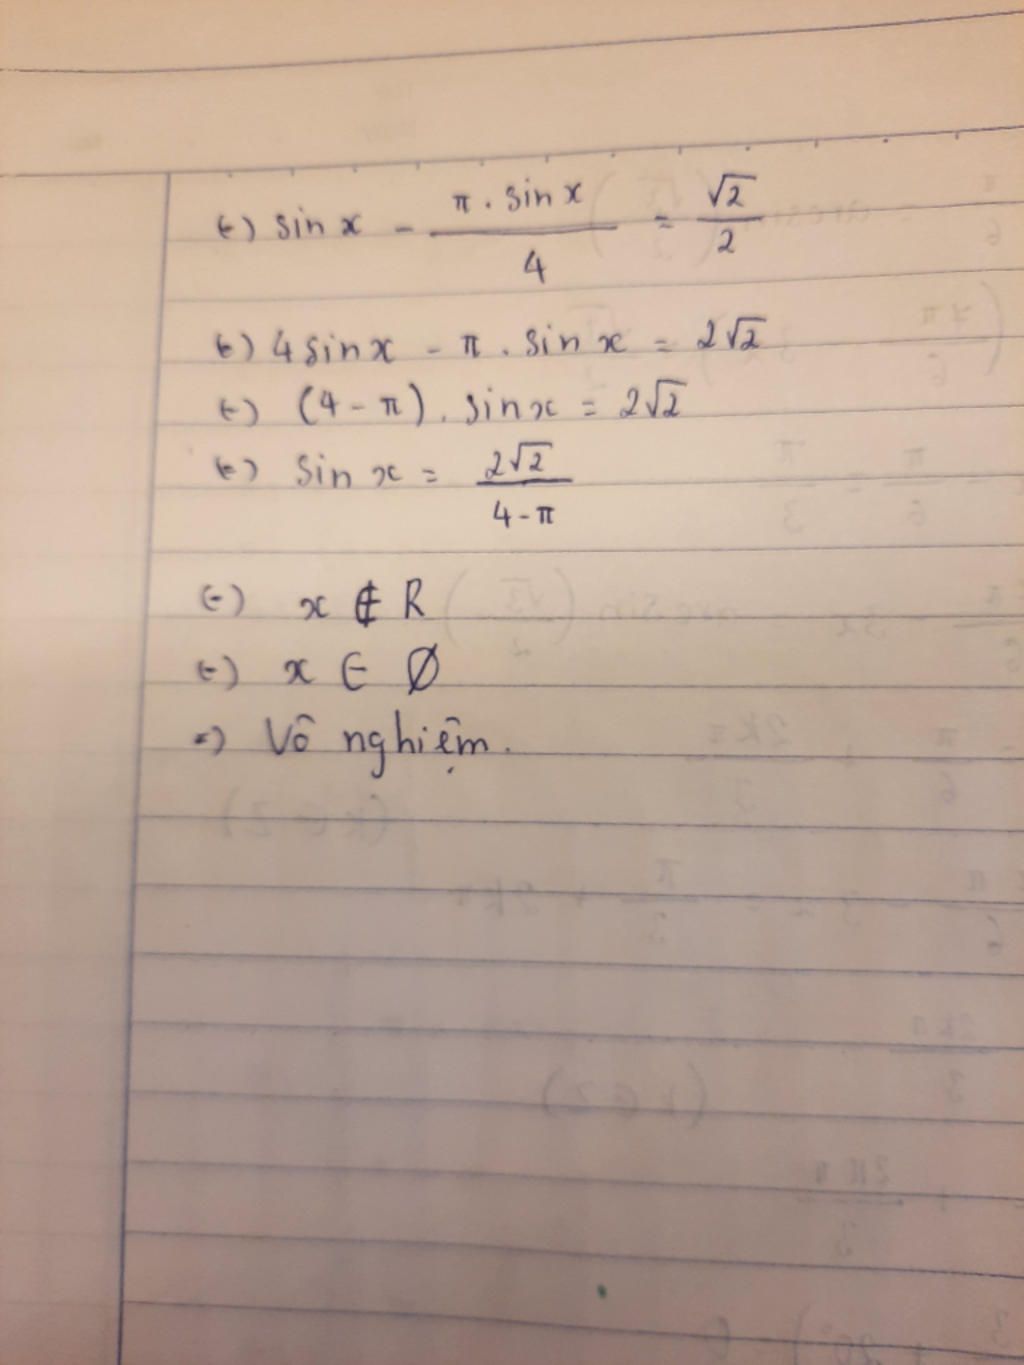 ⇔ sin x - π . sin x / 4 = √2 / 2
⇔ 4 sin x - π . sin x = 2√2
⇔ (4 - π) . sin x = 2√2
⇔ sin x = 2√2 / 4 - π
⇔ x ∉ R
⇔ x ∈ Ø
⇒ Vô nghiệm.